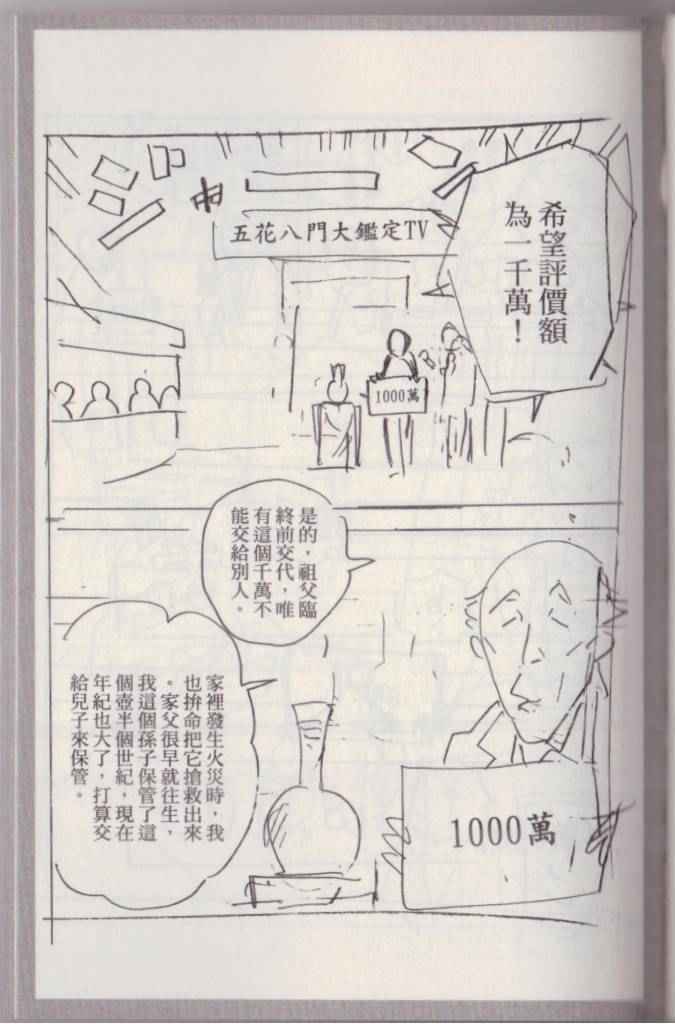 希望評價額
為一千萬！
五花八門大鑑定TV
1000萬
是的，祖父臨
終前交代，唯
有這個千萬不
能交給別人。
家裡發生火災時，我
也拚命把它搶救出來
。家父很早就往生，
我這個孫子保管了這
個壺半個世紀，現在
年紀也大了，打算交
給兒子來保管。
1000萬